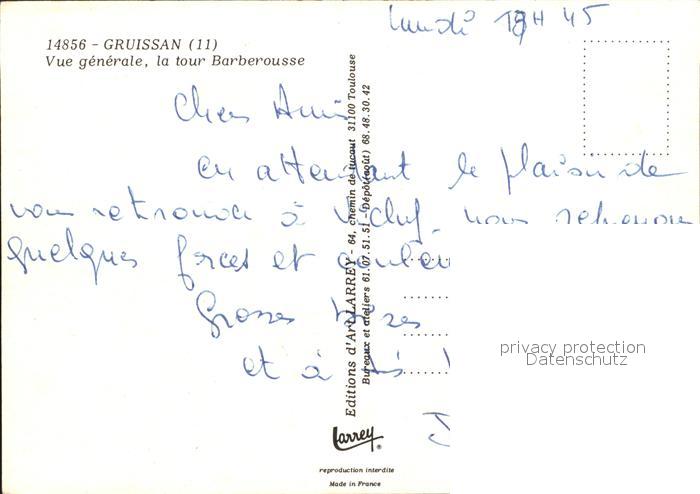 lundi 18H45
14856 - GRUISSAN (11)
Vue générale, la tour Barberousse
Chers Amis
en attendant le plaisir de
vous retrouver à Vichy, nous retrouvons
quelques forces et couleu
Grosses bises
et à
J
Editions d'Art LARREY - 64, chemin de tucaut 31100 Toulouse
Bureaux et ateliers 61.07.51.51 - Dépôt (août) 68.48.30.42
larrey ®
reproduction interdite
Made in France
privacy protection
Datenschutz